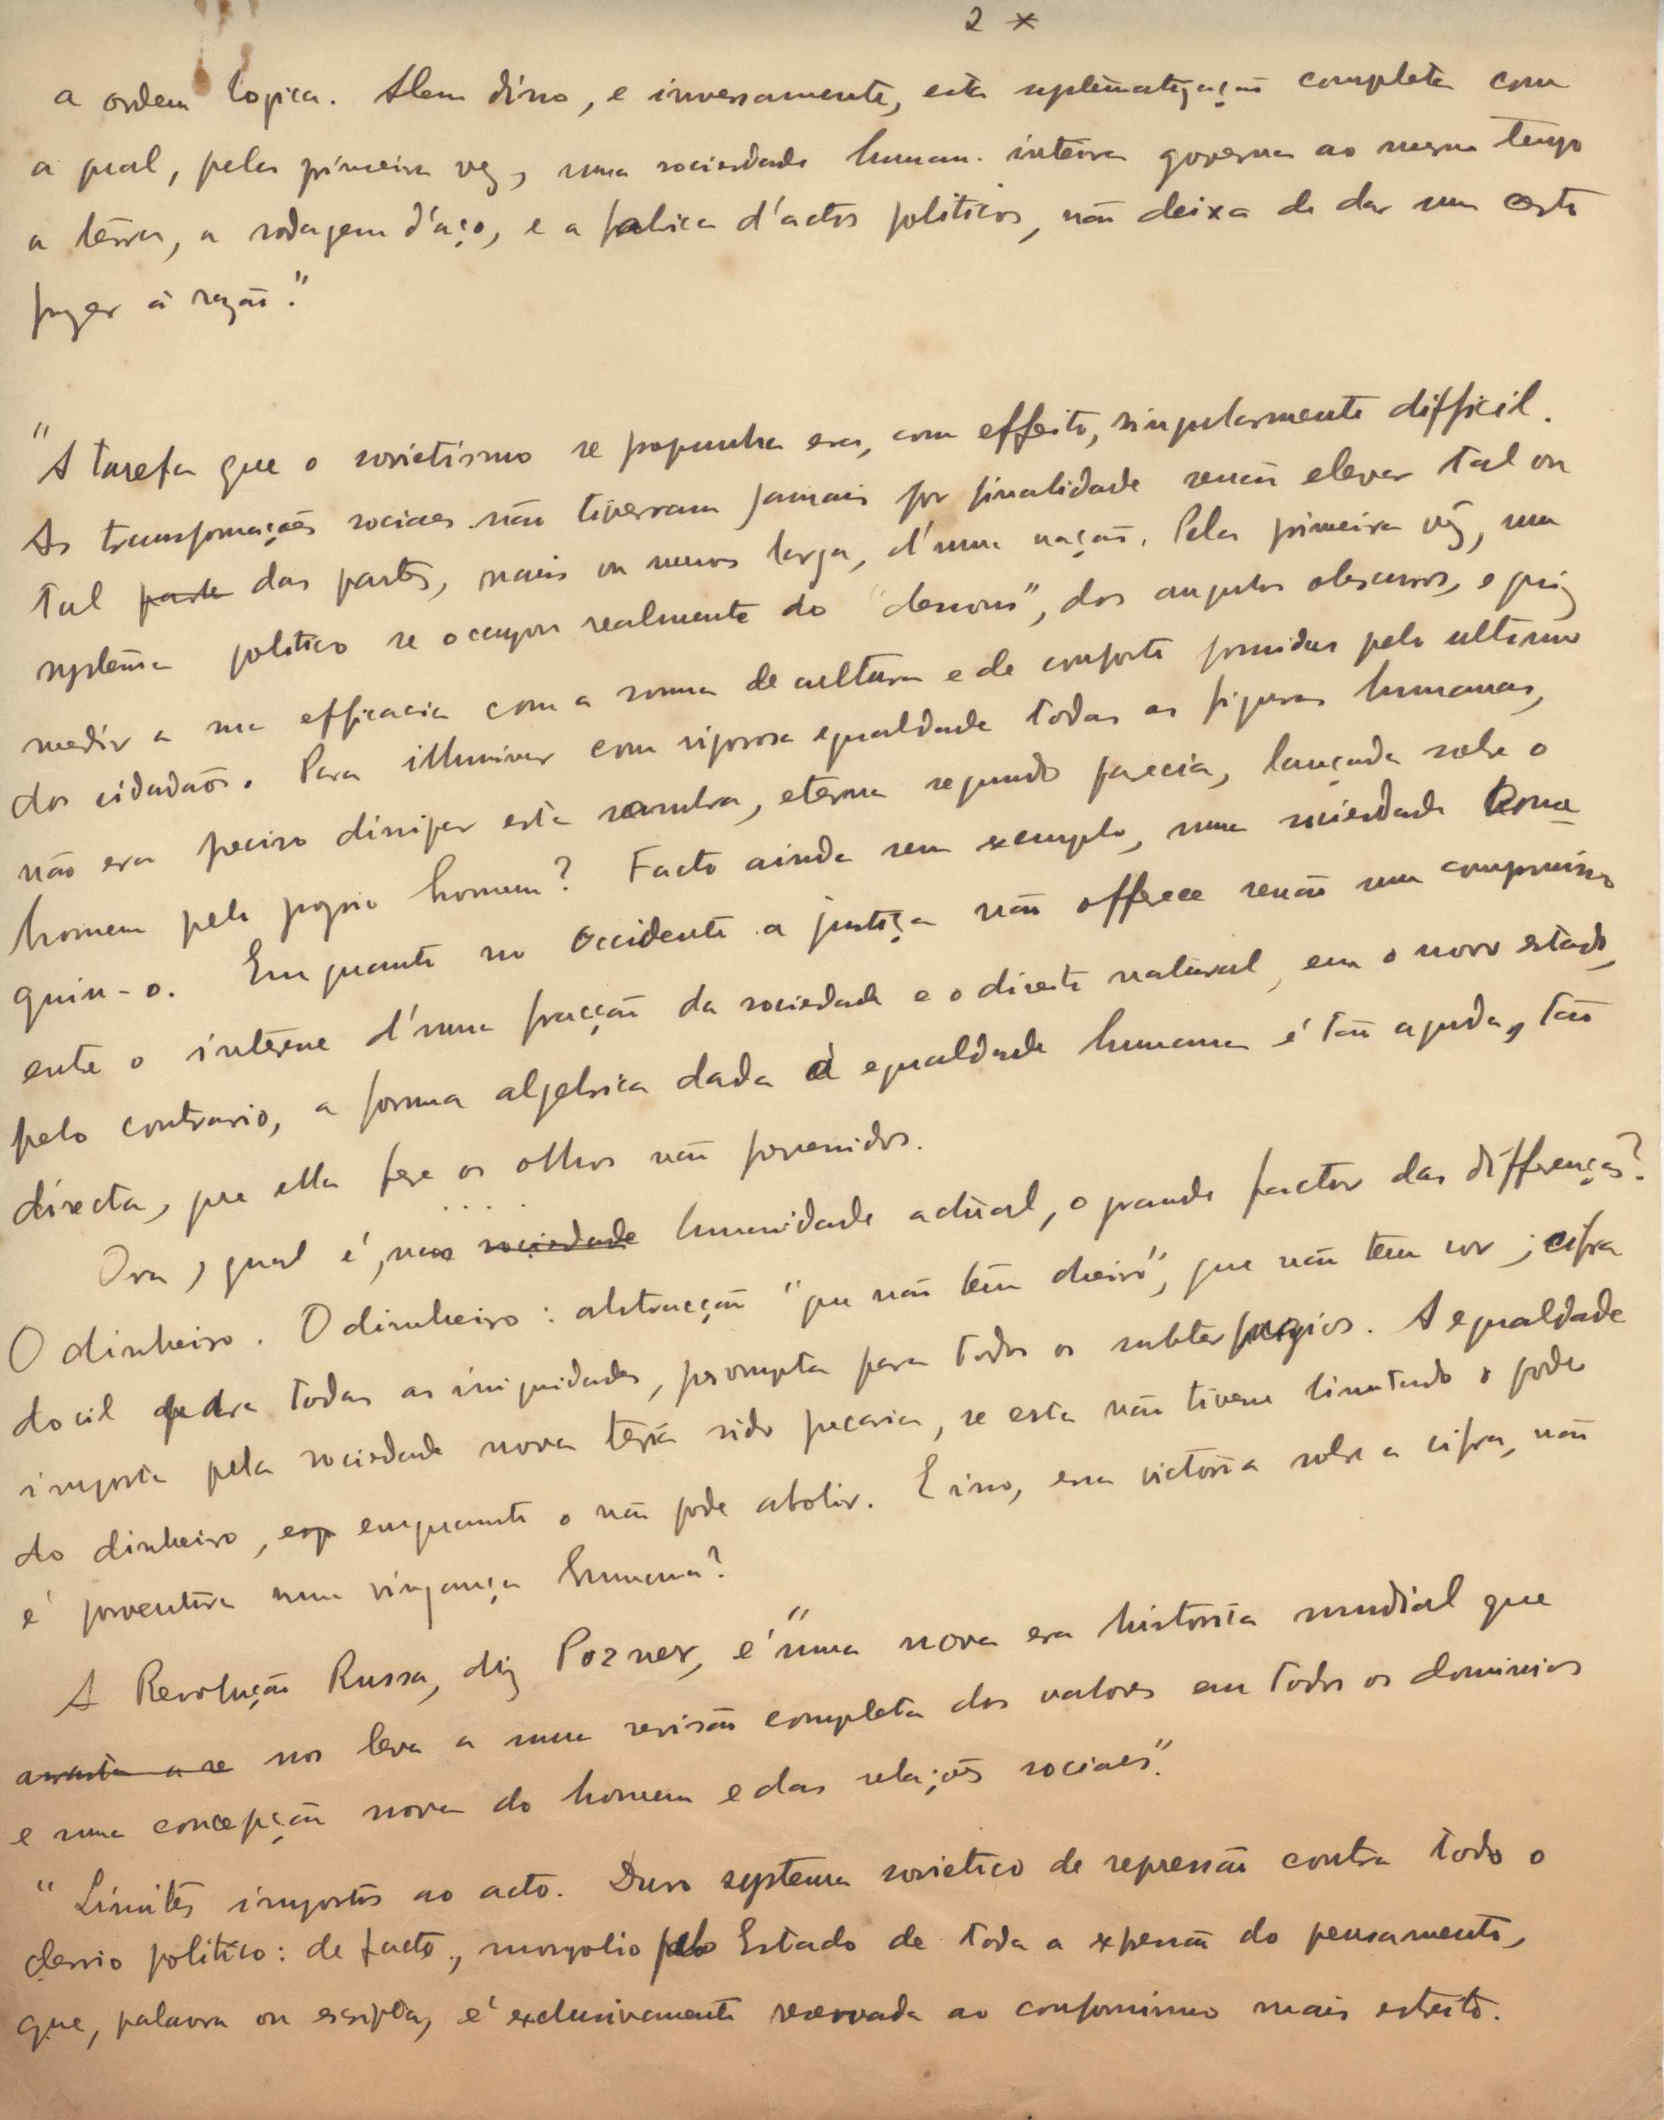 2 *
a ordem logica. Alem disso, e inversamente, esta systematização completa com
a qual, pela primeira vez, uma sociedade humana inteira governa ao mesmo tempo
a terra, a rodagem d'aço, e a fabrica d'actos politicos, não deixa de dar um certo
prazer á razão."
"A tarefa que o sovietismo se propunha era, com effeito, singularmente difficil.
As transformações sociaes não tiveram jamais por finalidade senão elevar tal ou
tal parte das partes, mais ou menos larga, d'uma nação. Pela primeira vêz, um
systema politico se occupou realmente do "dessous", dos angulos obscuros, e quiz
medir a sua efficacia com a somma de cultura e de conforto fornidas pelo ultimo
dos cidadaõs. Para illuminar com rigorosa egualdade todas as figuras humanas,
não era preciso dissipar esta sombra, eterna segundo parecia, lançada sobre o
homem pelo proprio homem? Facto ainda sem exemplo, uma sociedade
o. Emquanto no Occidente a justiça não offerece senão um compromisso
entre o interesse d'uma fracção da sociedade e o direito natural, em o novo estado,
pelo contrario, a forma algebrica dada á egualdade humana é tão aguda, tão
directa, que ella fere os olhos não prevenidos.
.....
Ora, qual é, na sociedade humanidade actual, o grande factor das differenças?
O dinheiro. O dinheiro: abstracção "que não tem cheiro", que não tem cor; cifra
docil para todas as iniquidades, prompta para todos os subterfugios. A egualdade
imposta pela sociedade nova teria sido precaria, se esta não tivesse limitado o poder
do dinheiro, esp emquanto o não pode abolir. E isso, essa victoria sobre a cifra, não
é porventura uma vingança humana?
A Revolução Russa, diz Pozner, é "uma nova era historica mundial que
arrasta a se nos leva a uma revisão completa dos valores em todos os dominios
e uma concepção nova do homem e das relações sociaes".
"Limites impostos ao acto. Duro systema sovietico de repressão contra todo o
desvio politico: de facto, monopolio pelo Estado de toda a expressão do pensamento,
que, palavra ou escripta, é exclusivamente reservada ao conformismo mais estreito.